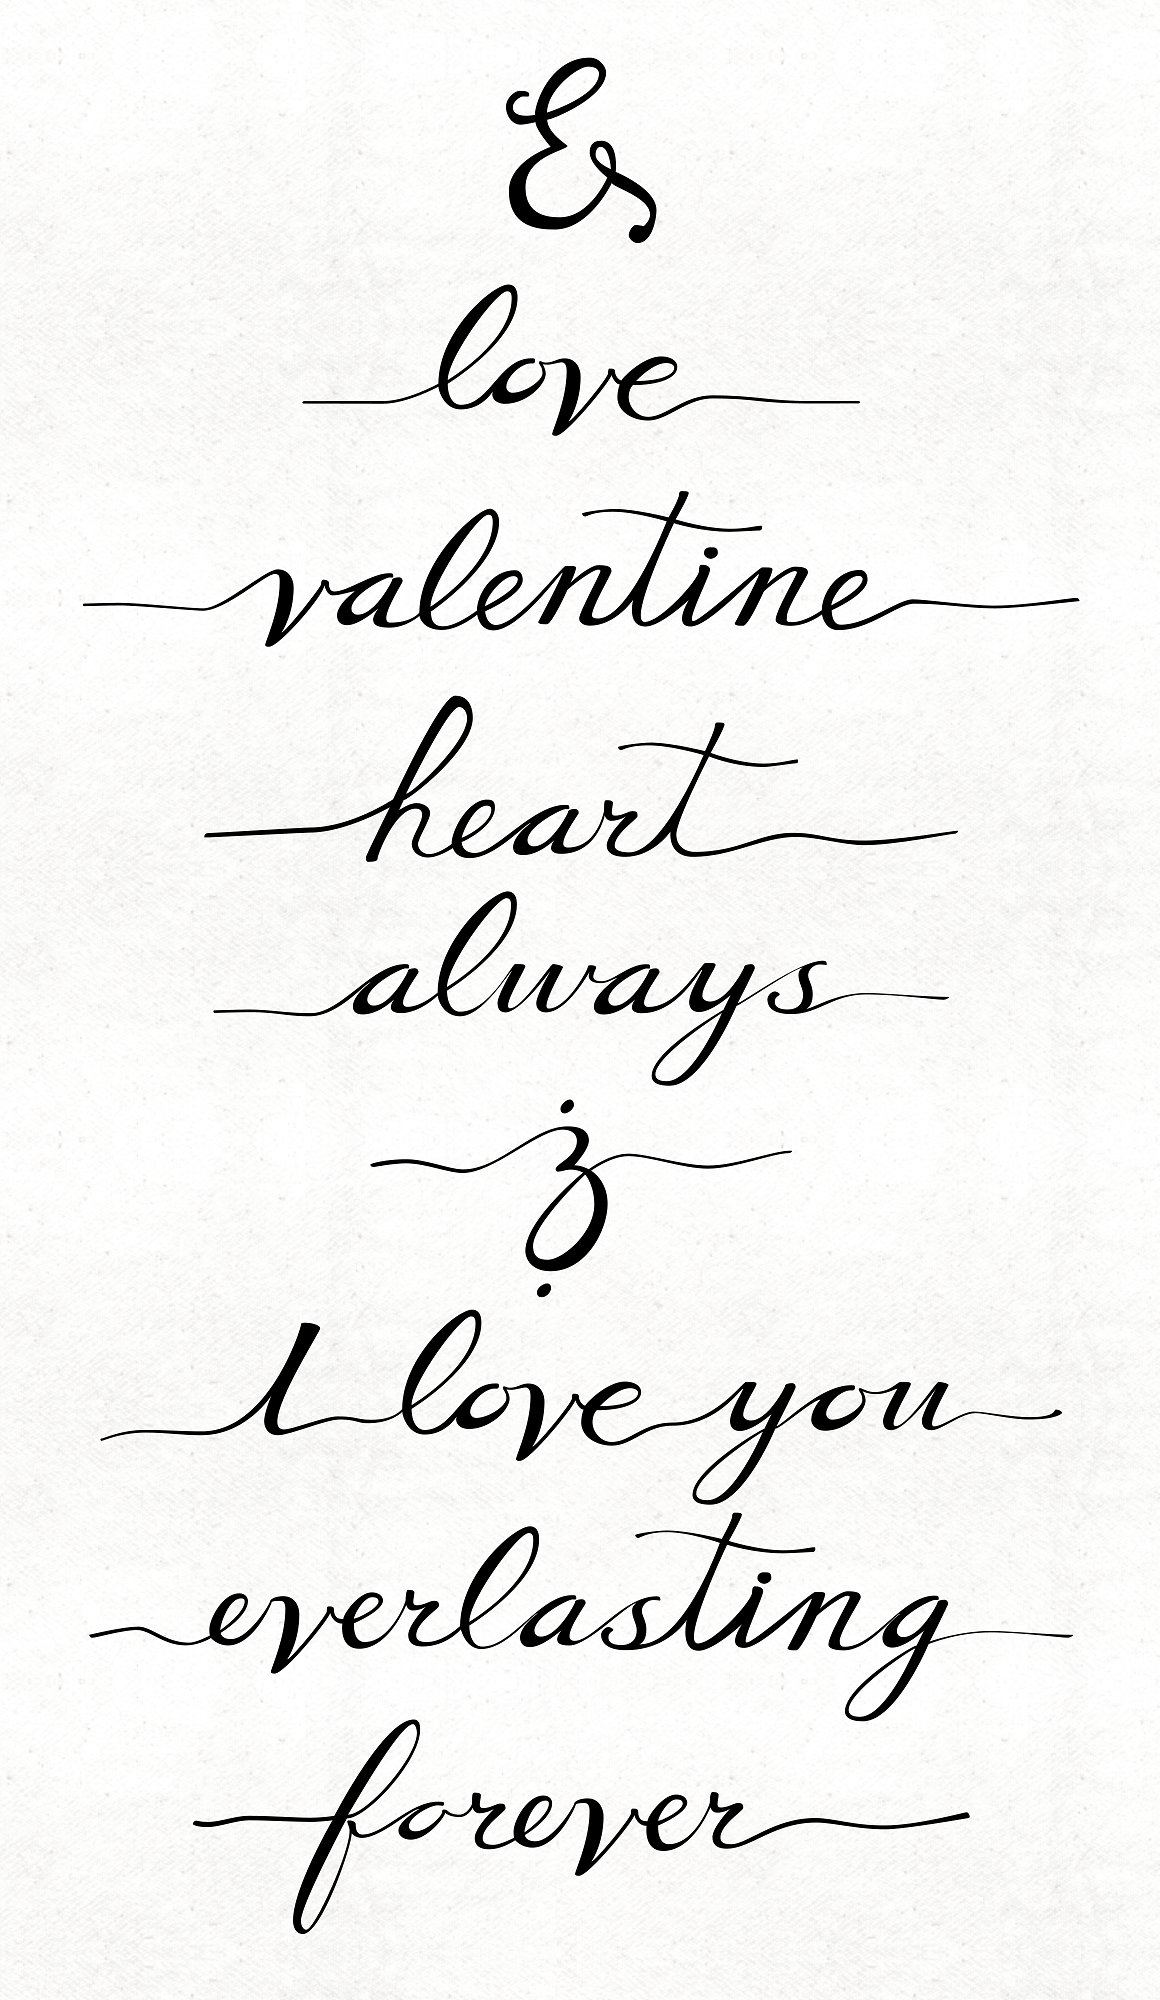 &
love
valentine
heart
always
I love you
everlasting
forever